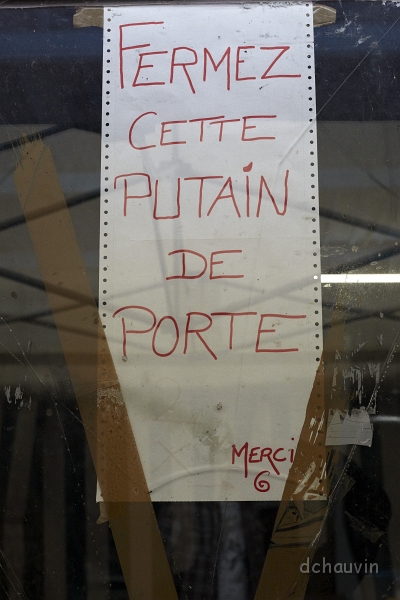 FERMEZ
CETTE
PUTAIN
DE
PORTE
MERCI
dchauvin